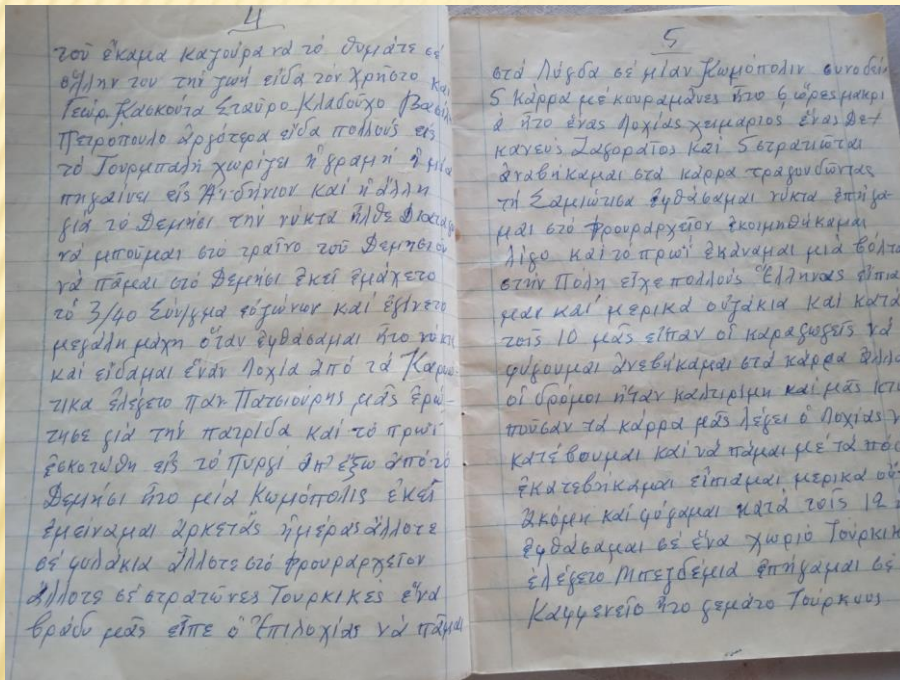 4
τοῦ ἔκαμα καζούρα νά τό θυμάτε σέ
ὅλην του τήν ζωή εἶδα τόν Χρῆστο καί
Γεώρ. Κασκούτα Σταῦρο Κλαδοῦχο Βασίλη
Πετρόπουλο ἀργότερα εἶδα πολλούς εἰς
τό Τουρμπαλῆ χωρίζει ἡ γραμή ἡ μία
πηγαίνει εἰς Ἀϊδήνιον καί ἡ ἄλλη
γιά τό Δεμήσι τήν νύκτα ἦλθε Διαταγή
νά μποῦμαι στό τραῖνο τοῦ Δεμησίου
νά πᾶμαι στό Δεμήσι ἐκεῖ ἐμάχετο
τό 3/40 Σύν/γμα εὐζώνων καί ἐγίνετο
μεγάλη μάχη ὅταν ἐφθάσαμαι ἦτο νύκτα
καί εἴδαμαι ἕναν Λοχία ἀπό τά
τικα ἐλέγετο Παν Πατσιούρης μᾶς ἐρώ-
τησε γιά τήν πατρίδα καί τό πρωΐ
ἐσκοτώθη εἰς τό Πυργί ἀπ' ἔξω ἀπό τό
Δεμήσι ἦτο μία Κωμόπολις ἐκεῖ
ἐμείναμαι ἀρκετάς ἡμέρας ἄλλοτε
σέ φυλάκια ἄλλοτε στό φρουραρχεῖον
ἄλλοτε σέ στρατῶνες Τουρκικές ἕνα
βράδυ μᾶς εἶπε ὁ Ἐπιλοχίας νά πᾶμαι
5
στά Λύγδα σέ μίαν Κωμόπολιν συνοδεία
5 κάρρα μέ κουραμάνες ἦτο 6 ὧρες μακρι
ά ἦτο ἕνας Λοχίας χειμαριος ἕνας Δε-
κανεύς Ζαγοραῖος καί 5 στρατιῶται
ἀναβήκαμαι στά κάρρα τραγουδῶντας
τή Σαμιώτισα ἐφθάσαμαι νύκτα ἐπήγα-
μαι στό φρουραρχεῖον ἐκοιμηθήκαμαι
λίγο καί τό πρωΐ ἐκάναμαι μιά βόλτα
στήν Πόλη εἶχε πολλούς Ἕλληνας εἴπια
μαι καί μερικά οὐζάκια καί κατά
τοῖς 10 μᾶς εἶπαν οἱ καραγωγεῖς νά
φύγουμαι ἀνεβήκαμαι στά κάρρα ἀλλά
οἱ δρόμοι ἦταν καλτιρίμη καί μᾶς κτυ
ποῦσαν τά κάρρα μᾶς λέγει ὁ Λοχίας ν
κατέβουμαι καί νά πᾶμαι μέ τά πόδ
ἐκατεβήκαμαι εἴπιαμαι μερικά οὐ
ἀκόμη καί φύγαμαι κατά τοῖς 12
ἐφθάσαμαι σέ ἕνα χωριό Τούρκικ
ἐλέγετο Μπεζδέμια ἐπήγαμαι σέ
Καφφενεῖο ἦτο γεμάτο Τούρκους